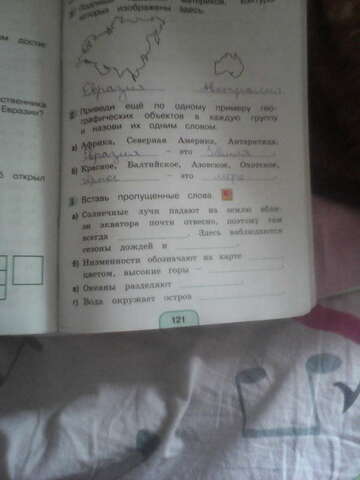 материков, контуры
которых изображены здесь.
Евразия Австралия
2 Приведи ещё по одному примеру гео-
графических объектов в каждую группу
и назови их одним словом.
а) Африка, Северная Америка, Антарктида,
Евразия – это
б) Красное, Балтийское, Азовское, Охотское,
– это море
3 Вставь пропущенные слова.
а) Солнечные лучи падают на землю вбли-
зи экватора почти отвесно, поэтому там
всегда . Здесь наблюдаются
сезоны дождей и
б) Низменности обозначают на карте
цветом, высокие горы –
в) Океаны разделяют
г) Вода окружает остров
121
ственника
Евразии?
открыл